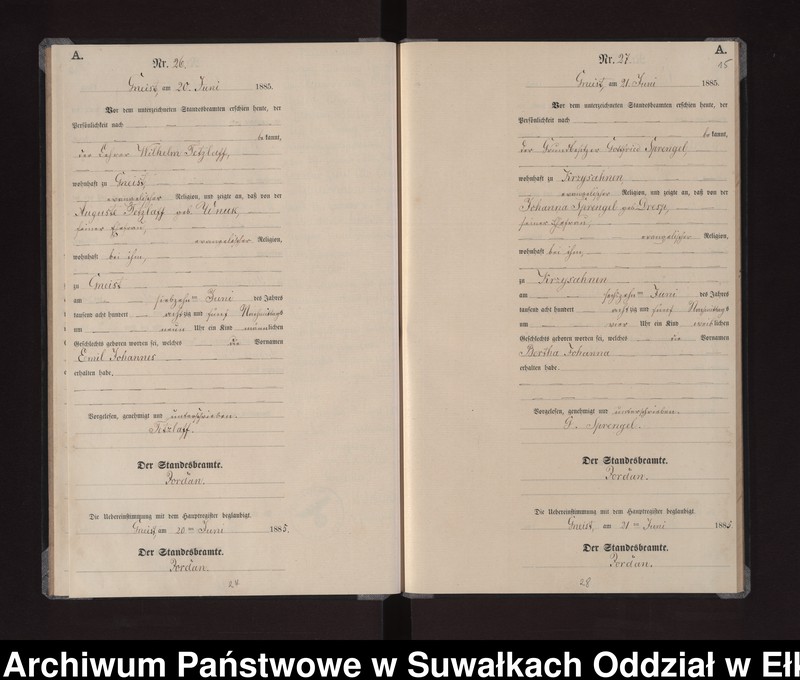 A.
Nr. 26.
Gneist, am 20. Juni 1885.
Vor dem unterzeichneten Standesbeamten erschien heute, der
Persönlichkeit nach
be kannt,
der Lehrer Wilhelm Tetzlaff,
wohnhaft zu Gneist,
evangelischer Religion, und zeigte an, daß von der
Auguste Tetzlaff geb.
seiner Ehefrau,
evangelischer Religion,
wohnhaft bei ihm,
zu Gneist
am siebzehnten Juni des Jahres
tausend acht hundert achtzig und fünf Nachmittags
um neun Uhr ein Kind männlichen
Geschlechts geboren worden sei, welches die Vornamen
Emil Johannes
erhalten habe.
Vorgelesen, genehmigt und unterschrieben.
Tetzlaff.
Der Standesbeamte.
Jordan.
Die Uebereinstimmung mit dem Hauptregister beglaubigt.
Gneist, am 20ten Juni 1885.
Der Standesbeamte.
Jordan.
A.
15
Nr. 27.
Gneist, am 21. Juni 1885.
Vor dem unterzeichneten Standesbeamten erschien heute, der
Persönlichkeit nach
be kannt,
der Grundbesitzer Gottfried Sprengel,
wohnhaft zu Krzysahnen
evangelischer Religion, und zeigte an, daß von der
Johanna Sprengel geb.
seiner Ehefrau,
evangelischer Religion,
wohnhaft bei ihm,
zu Krzysahnen
am sechszehnten Juni des Jahres
tausend acht hundert achtzig und fünf Nachmittags
um vier Uhr ein Kind weiblichen
Geschlechts geboren worden sei, welches die Vornamen
Bertha Johanna
erhalten habe.
Vorgelesen, genehmigt und unterschrieben.
G. Sprengel.
Der Standesbeamte.
Jordan.
Die Uebereinstimmung mit dem Hauptregister beglaubigt.
Gneist, am 21ten Juni 1885
Der Standesbeamte.
Jordan.
28
Archiwum Państwowe w Suwałkach Oddział w Ełk